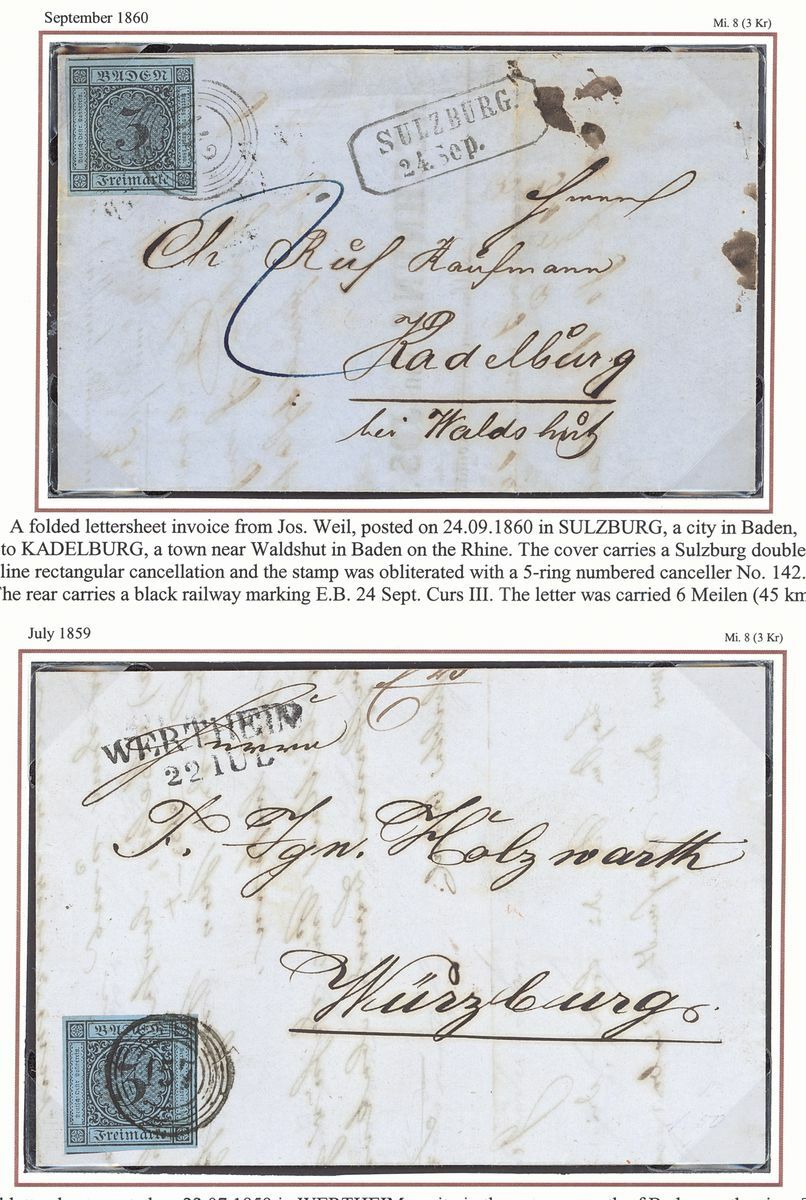 September 1860
Mi. 8 (3 Kr)
BADEN
3
Freimarke
SULZBURG.
24. Sep.
Herrn
Ch Ruf Kaufmann
Kadelburg
bei Waldshut
A folded lettersheet invoice from Jos. Weil, posted on 24.09.1860 in SULZBURG, a city in Baden,
to KADELBURG, a town near Waldshut in Baden on the Rhine. The cover carries a Sulzburg double
line rectangular cancellation and the stamp was obliterated with a 5-ring numbered canceller No. 142.
The rear carries a black railway marking E.B. 24 Sept. Curs III. The letter was carried 6 Meilen (45 km
July 1859
Mi. 8 (3 Kr)
WERTHEIM
22 IUL
Herrn
F. Ign. Holzwarth
Würzburg.
BADEN
3
Freimarke